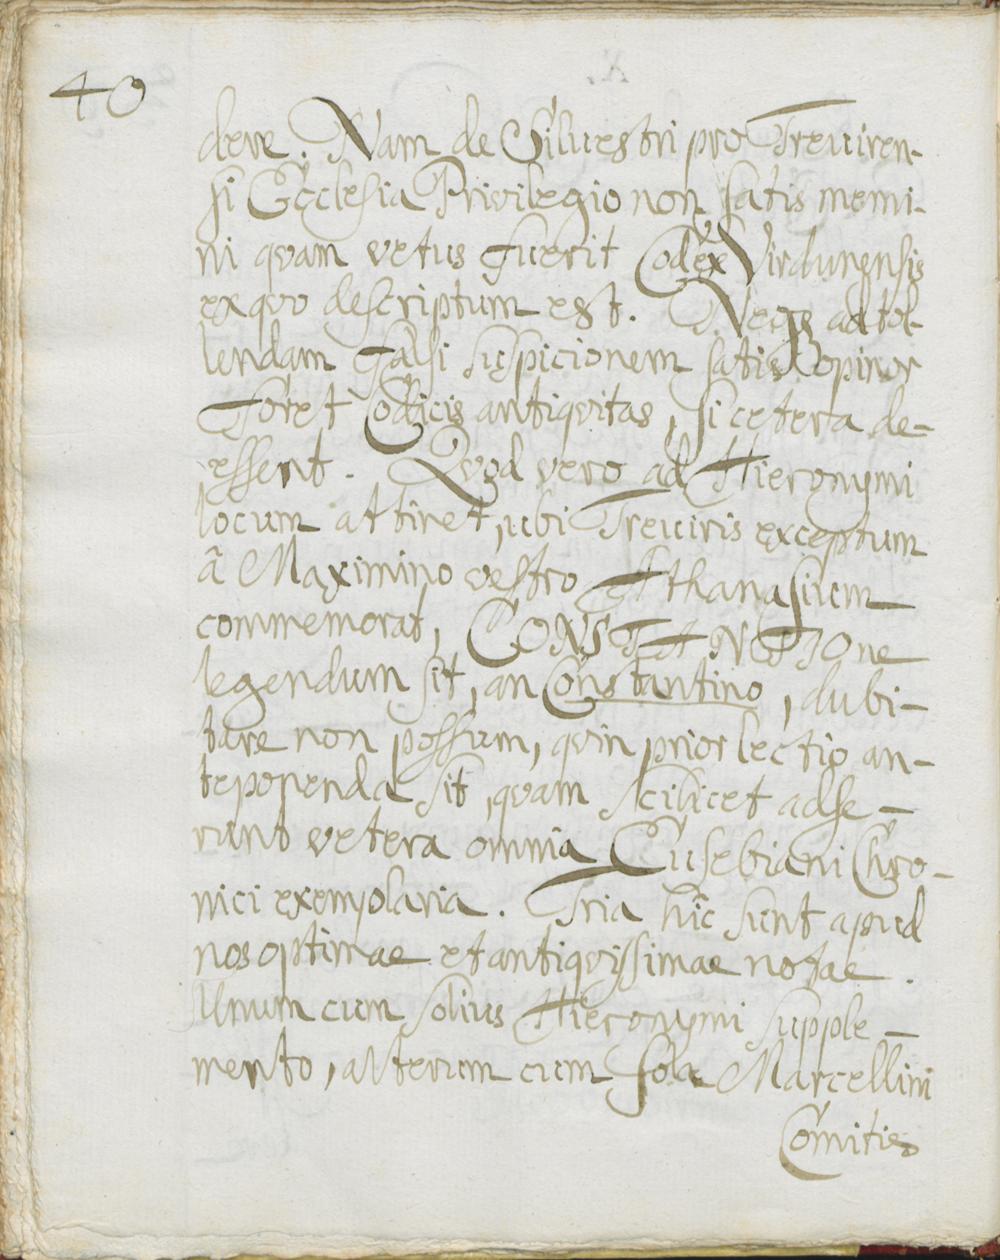 40
dere. Nam de Silvestri pro Treviren-
si Ecclesia Privilegio non satis memi-
ni quam vetus fuerit Codex Virdunensis
ex quo descriptum est. Neque ad tol-
lendam falsi suspicionem satis opinor
foret Codicis antiquitas, si cetera de-
essent. Quod vero ad Hieronymi
locum attinet, ubi Treviris exceptum
â Maximino vestro Athanasium
commemorat, CONSTANTIOne
legendum sit, an Constantino, dubi-
tare non possum, quin prior lectio an-
teponenda sit, quam scilicet adse-
runt vetera omnia Eusebiani Chro-
nici exemplaria. Tria hîc sunt apud
nos optimae et antiquissimae notae.
Unum cum solius Hieronymi supple-
mento, alterum cum sola Marcellini
Comitis